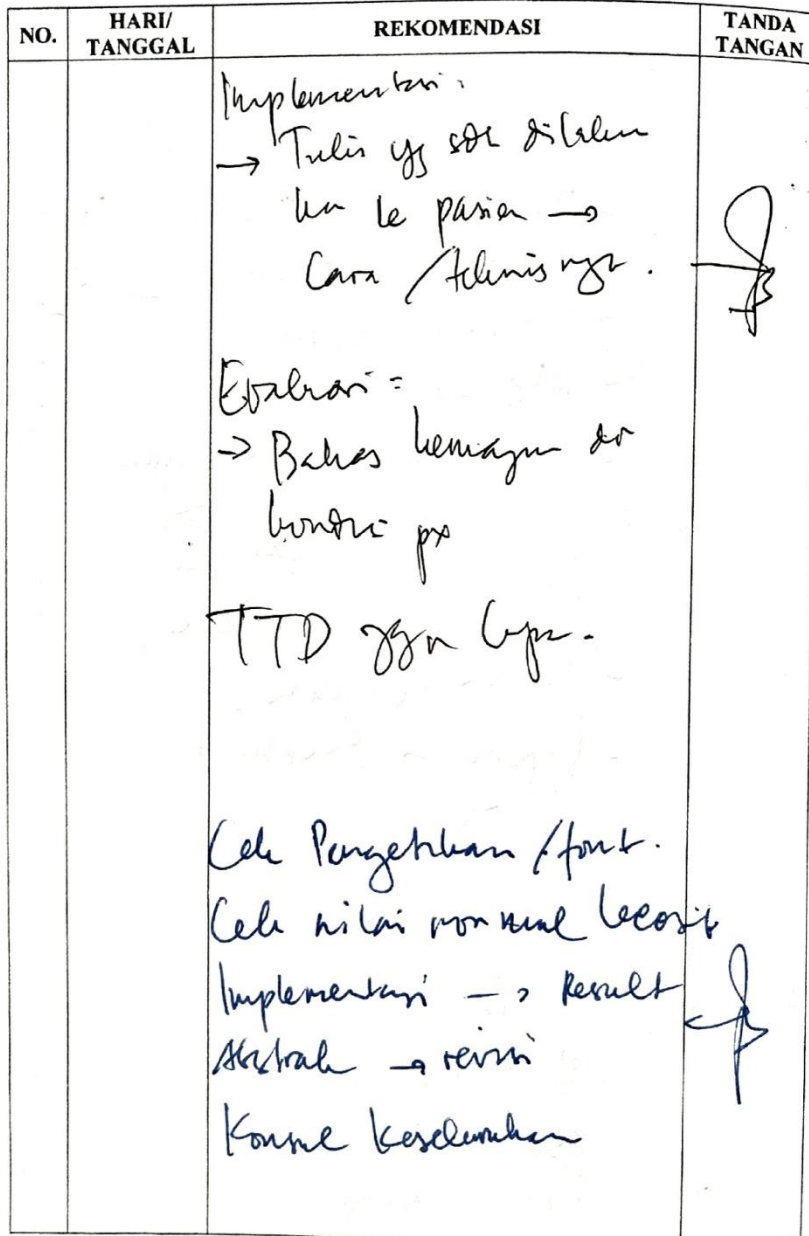 NO.
HARI/
TANGGAL
REKOMENDASI
TANDA
TANGAN
Implementasi :
→ Tulis yg sdh dilaku
kan ke pasien →
Cara / teknisnya.
Evaluasi =
→ Bahas kemajuan dr
kondisi px
TTD
Cek Pengetikan / font.
Cek nilai normal leukosit
Implementasi → Result
Abstrak → revisi
Konsul Keseluruhan